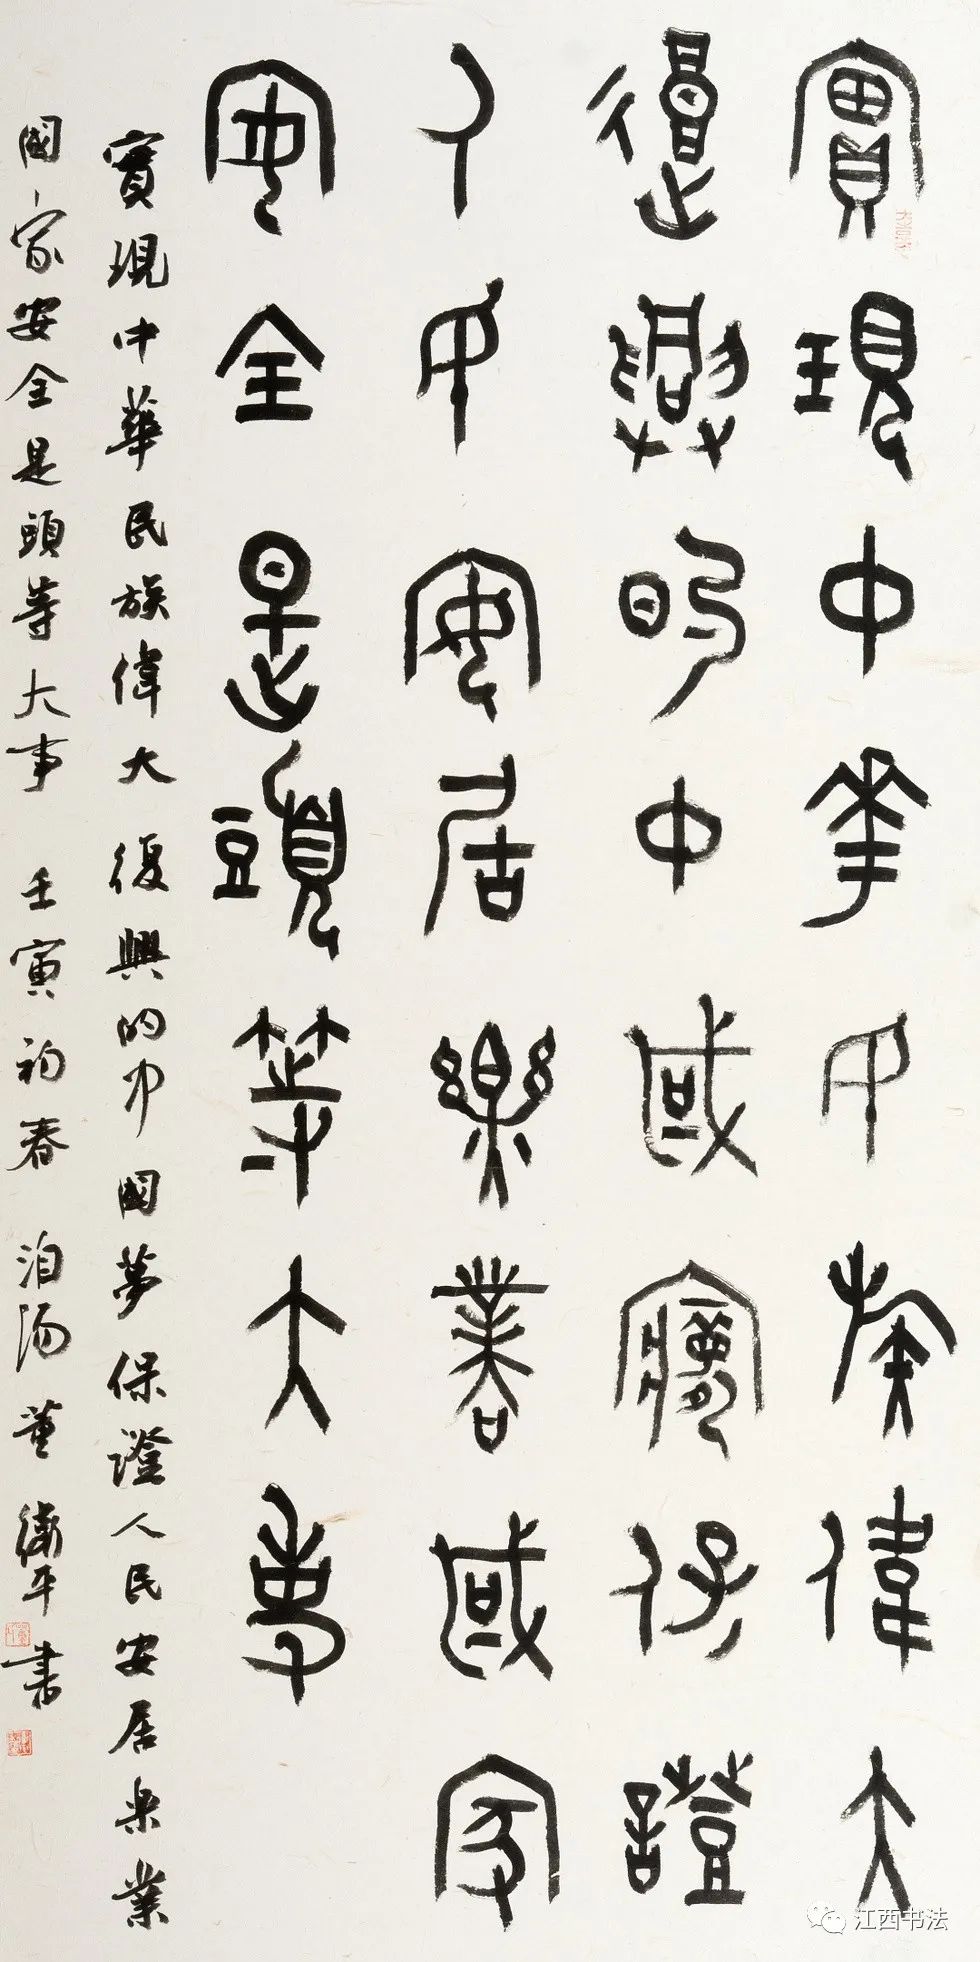 實現中華民族偉大
復興的中國夢保證
人民安居樂業國家
安全是頭等大事
實現中華民族偉大復興的中國夢保證人民安居樂業
國家安全是頭等大事 壬寅初春 洎陽董衛平書
江西书法